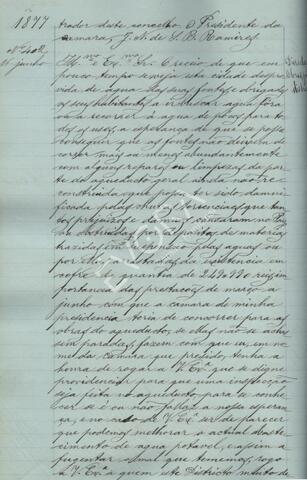 1877
trador deste concelho O Presidente da
Camara, J. N. de S. B. Ramires
Nº 402
15 junho
Illmo e Exmo Sr. Receio de que em
pouco tempo se veja esta cidade despro-
vida de agua das suas fontes e obrigados
os seus habitantes a ir buscar agua fóra
ou a recorrer á agua de poços para to-
dos os usos, a esperança de que se possa
conseguir que as fontes não deixem de
correr mais ou menos abundantemente
com alguns reparos ou limpezas da par-
te do aqueducto geral ainda não re-
construida e que possa ter sido damni-
ficada pelas chuvas torrenciaes que tan-
tos prejuizos e damnos causaram no
obstruidas por depositos de materias
trazidas em suspensão pelas aguas ou
por ellas arrastadas, da existencia em
cofre da quantia de 249:990 reis im-
portancia das prestações de março a
junho com que a camara da minha
presidencia teria de concorrer para as
obras do aqueducto se ellas não se achas-
sem paradas, fazem com que eu, em no-
me da camara que presido, tenha a
honra de rogar a V. Exª que se digne
providenciar para que uma inspecção
seja feita no aqueducto para se conhe-
cer se é ou não fallaz a nossa esperan-
ça, e no caso de V. Exª ser de parecer
que podemos melhorar o actual abaste-
cimento de agua potavel, e assim a-
fugentar o mal que tememos, rogo
a V. Exª a quem este Districto muito de